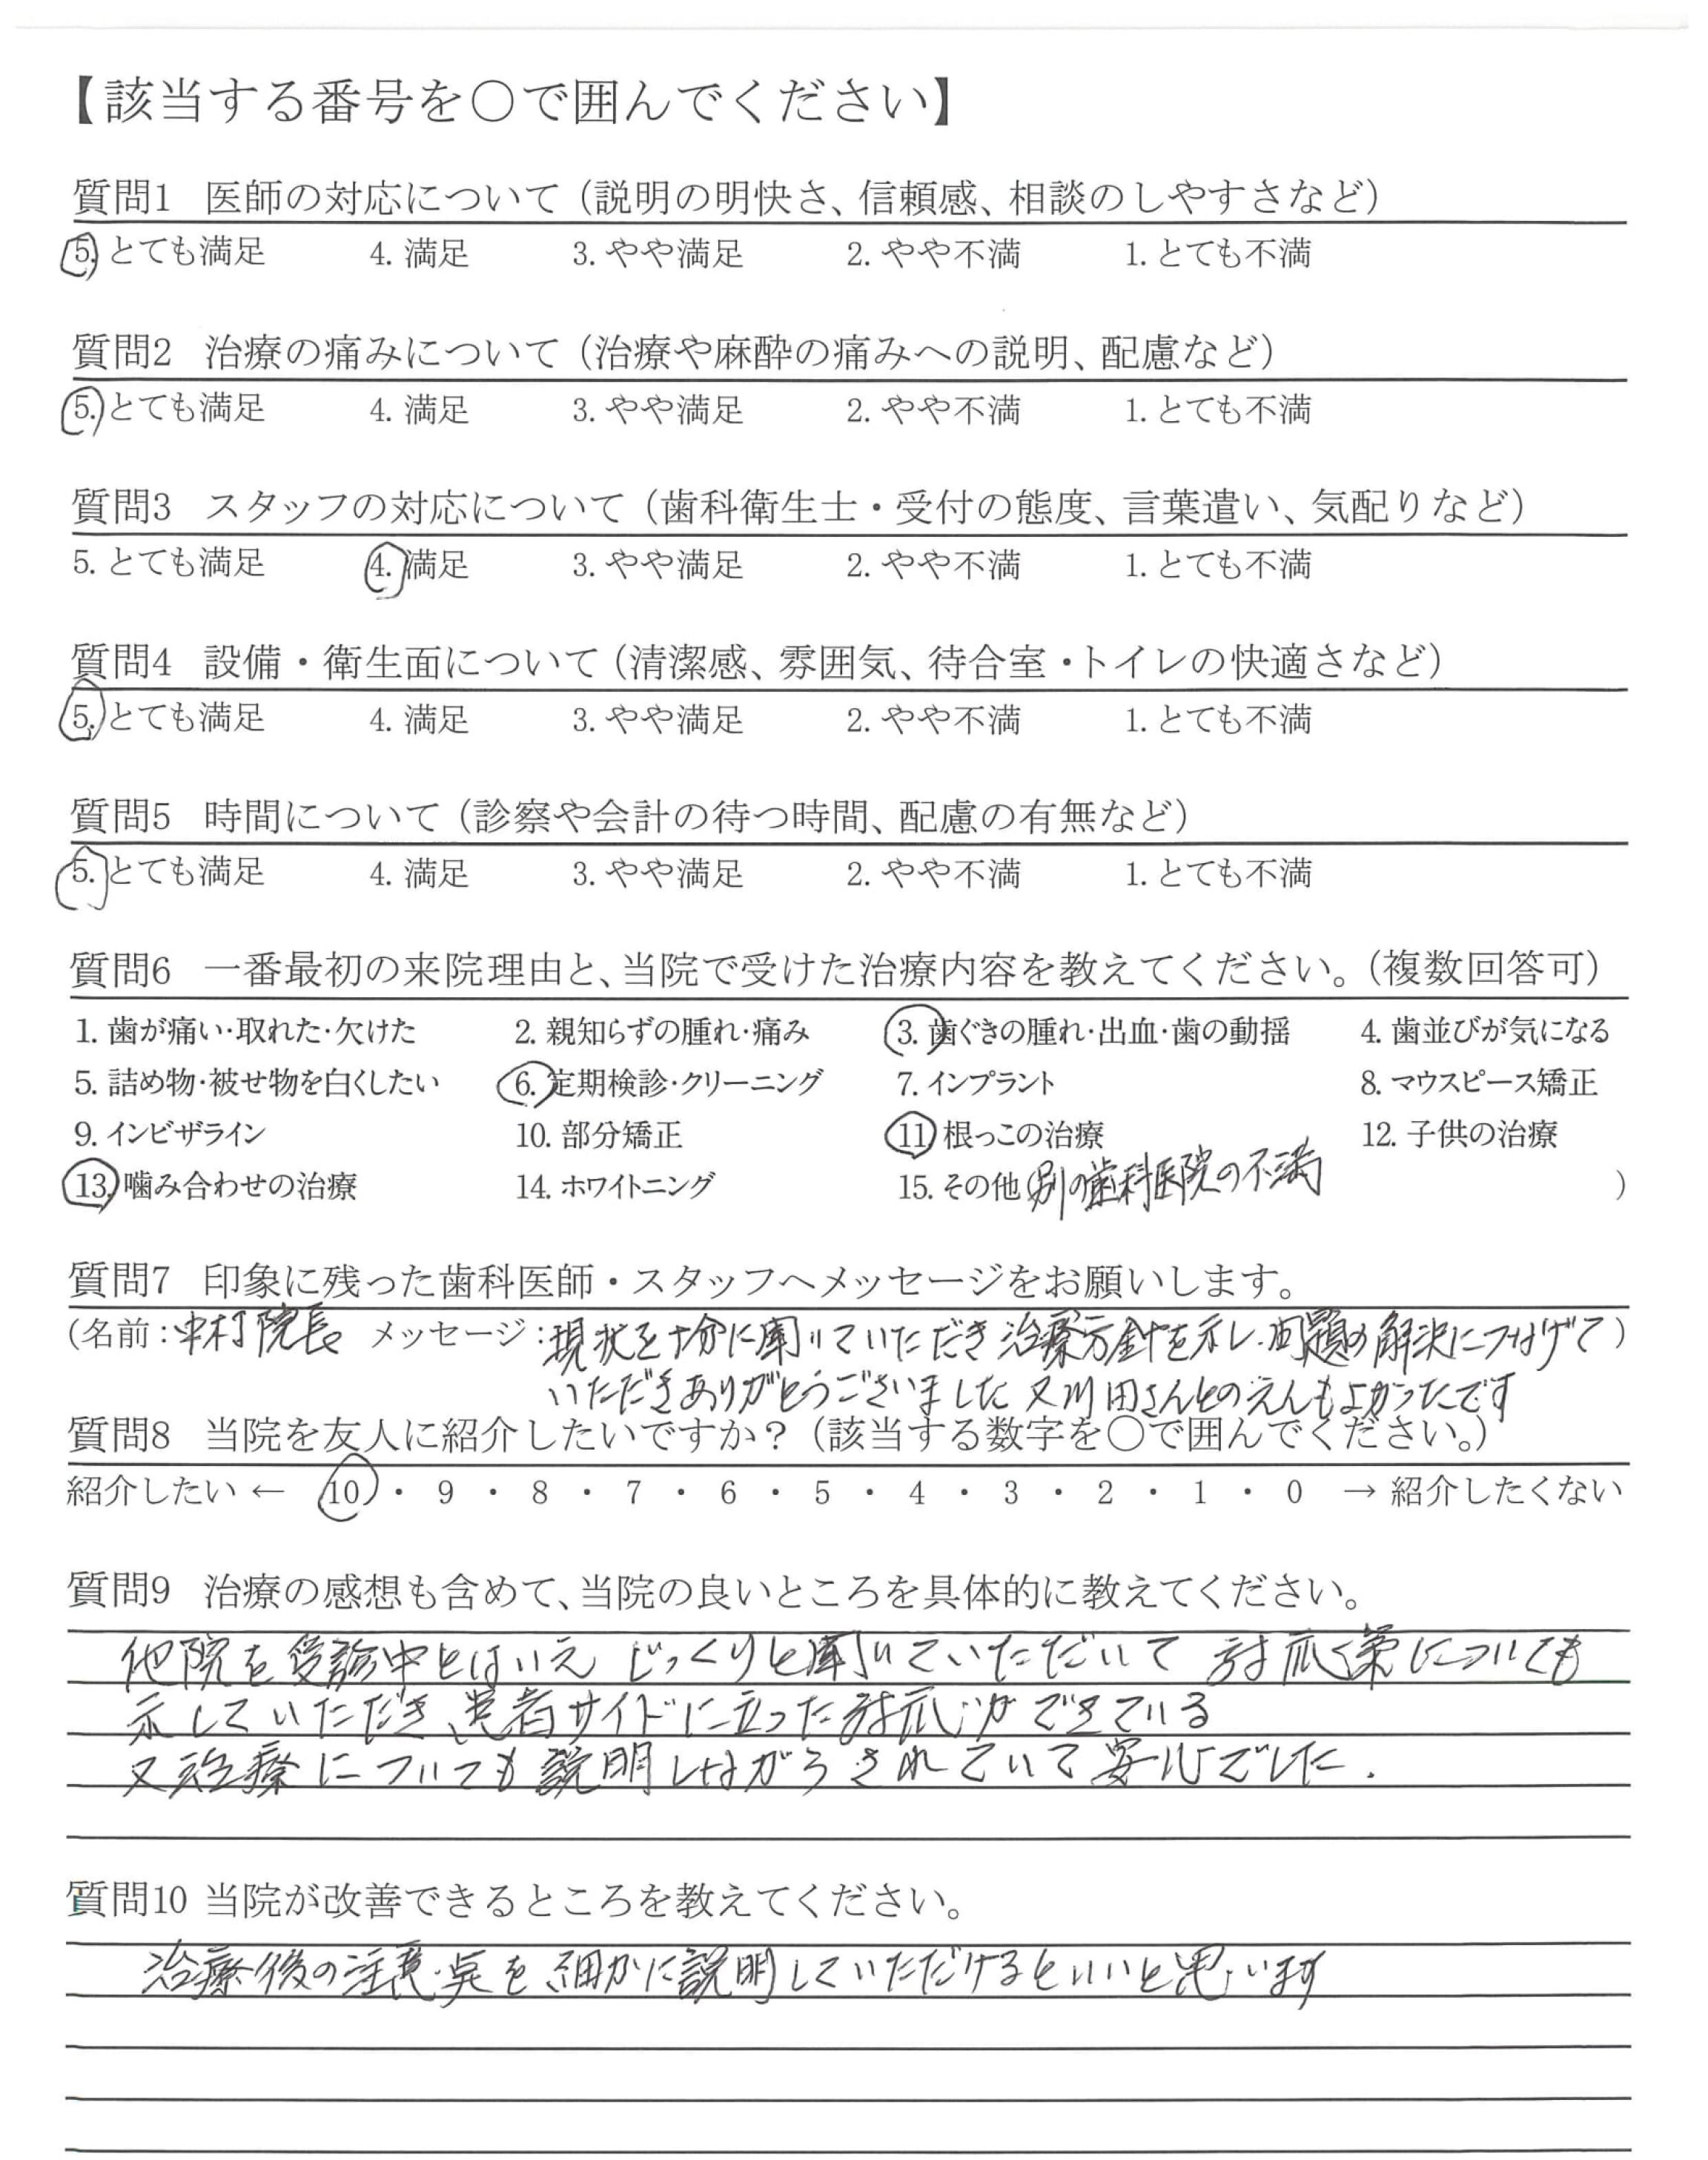 【該当する番号を〇で囲んでください】
質問1 医師の対応について（説明の明快さ、信頼感、相談のしやすさなど）
5. とても満足 4. 満足 3. やや満足 2. やや不満 1. とても不満
質問2 治療の痛みについて（治療や麻酔の痛みへの説明、配慮など）
5. とても満足 4. 満足 3. やや満足 2. やや不満 1. とても不満
質問3 スタッフの対応について（歯科衛生士・受付の態度、言葉遣い、気配りなど）
5. とても満足 4. 満足 3. やや満足 2. やや不満 1. とても不満
質問4 設備・衛生面について（清潔感、雰囲気、待合室・トイレの快適さなど）
5. とても満足 4. 満足 3. やや満足 2. やや不満 1. とても不満
質問5 時間について（診察や会計の待つ時間、配慮の有無など）
5. とても満足 4. 満足 3. やや満足 2. やや不満 1. とても不満
質問6 一番最初の来院理由と、当院で受けた治療内容を教えてください。（複数回答可）
1. 歯が痛い・取れた・欠けた 2. 親知らずの腫れ・痛み 3. 歯ぐきの腫れ・出血・歯の動揺 4. 歯並びが気になる
5. 詰め物・被せ物を白くしたい 6. 定期検診・クリーニング 7. インプラント 8. マウスピース矯正
9. インビザライン 10. 部分矯正 11. 根っこの治療 12. 子供の治療
13. 噛み合わせの治療 14. ホワイトニング 15. その他（別の歯科医院の不満）
質問7 印象に残った歯科医師・スタッフへメッセージをお願いします。
（名前：中村院長 メッセージ：現状を十分に聞いていただき治療方針を示し、問題の解決につなげて）
いただきありがとうございました 又川田さんとのえんもよかったです
質問8 当院を友人に紹介したいですか？（該当する数字を〇で囲んでください。）
紹介したい ← 10 ・ 9 ・ 8 ・ 7 ・ 6 ・ 5 ・ 4 ・ 3 ・ 2 ・ 1 ・ 0 → 紹介したくない
質問9 治療の感想も含めて、当院の良いところを具体的に教えてください。
他院を受診中とはいえ じっくりと聞いていただいて 対応策についても
示していただき、患者サイドに立った対応ができている
又治療についても説明しながらされていて安心でした.
質問10 当院が改善できるところを教えてください。
治療後の注意点を細かに説明していただけるといいと思います